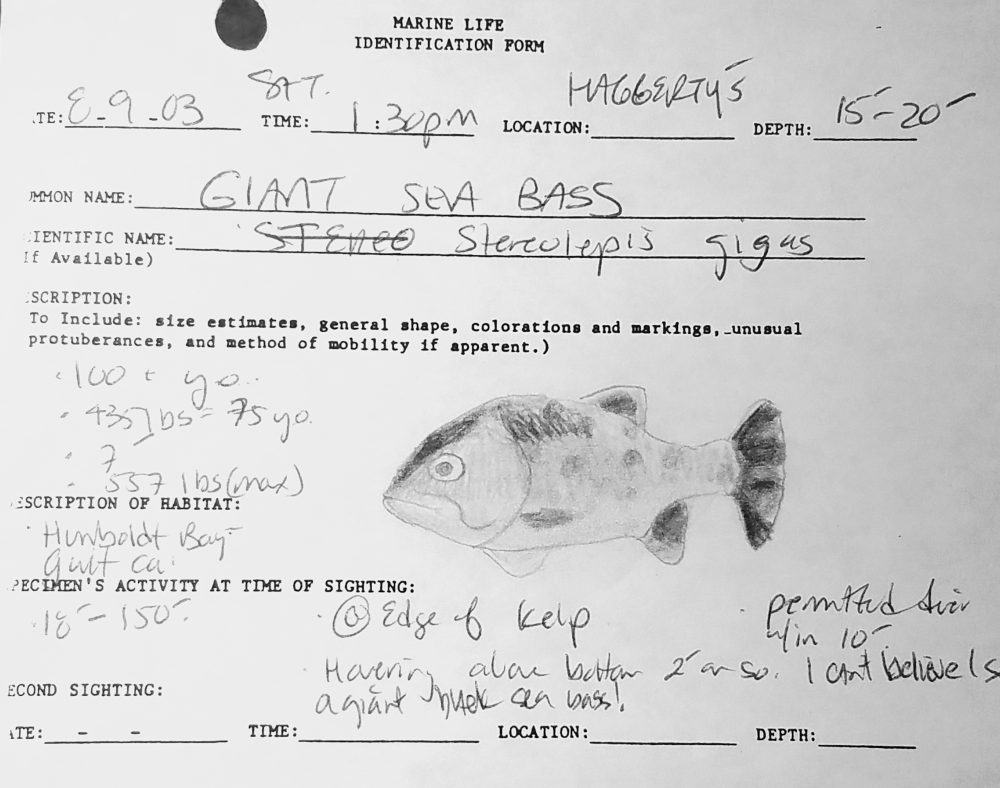 MARINE LIFE
IDENTIFICATION FORM
SAT. HAGGERTY'S
.TE: 8-9-03 TIME: 1:30pm LOCATION: DEPTH: 15'-20'
MMON NAME: GIANT SEA BASS
IENTIFIC NAME: Stereolepis gigas
If Available)
SCRIPTION:
To Include: size estimates, general shape, colorations and markings, unusual
protuberances, and method of mobility if apparent.)
· 100 + yo.
· 435 lbs = 75 yo.
· 7'
· 557 lbs (max)
ESCRIPTION OF HABITAT:
· Humboldt Bay-
Gulf Ca.
PECIMEN'S ACTIVITY AT TIME OF SIGHTING:
· 18'-150'
· @ Edge of Kelp
· permitted diver
w/in 10'
· Hovering above bottom 2' or so. I can't believe I s
a giant black sea bass!
ECOND SIGHTING:
ATE: - - TIME: LOCATION: DEPTH: